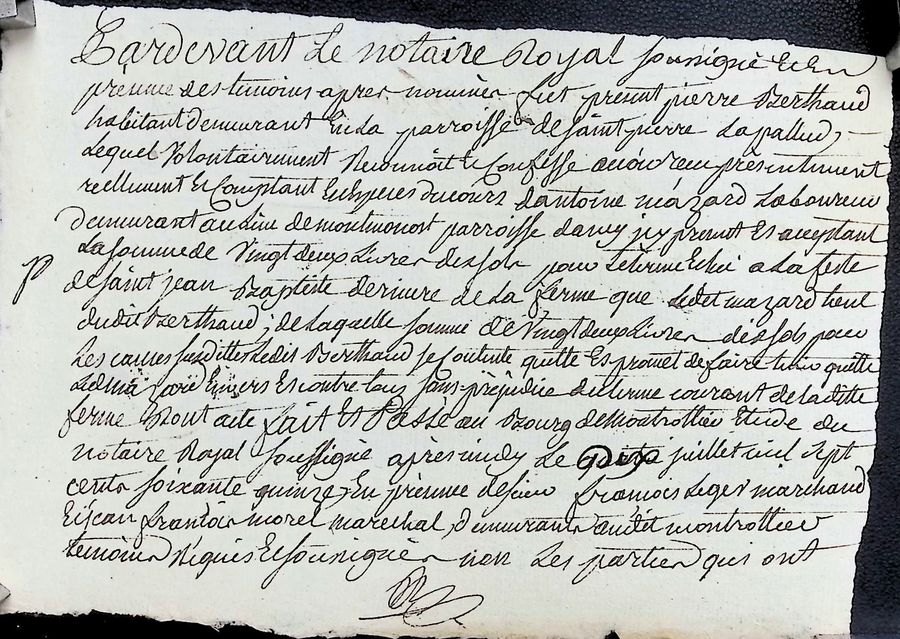 Pardevant Le notaire Royal sousigné Et En
présence des temoins apres nommés fut present pierre Berthaud
habitant demeurant En la parroisse de saint pierre La pallud,
Lequel Volontairement Reconnoit Et Confesse avoir receu présentement
reellement Et Comptant En Especes du cours d'antoine mazard Laboureur
demeurant au lieu de montmonost parroisse d'ancy icy present Et acceptant
La somme de Vingt deux Livres dix sols pour Le terme Echu a La feste
de saint jean Baptiste derniere de La ferme que Ledit mazard tient
dudit Berthaud, de Laquelle somme de Vingt deux Livres dix sols pour
Les causes susdittes Ledit Berthaud se Contente quitte Et promet de faire tenir quitte
Ledit mazard Envers Et contre tous sans préjudice du terme courant de laditte
ferme Dont acte fait Et Passé au Bourg de montrottier Etude du
notaire Royal soussigné apres midy Le juillet mil sept
cents soixante quinze, En presence de sieur françois Leger marchand
Et jean françois morel marechal, demeurants audit montrottier
temoins Requis Et sousignés non Les parties qui ont